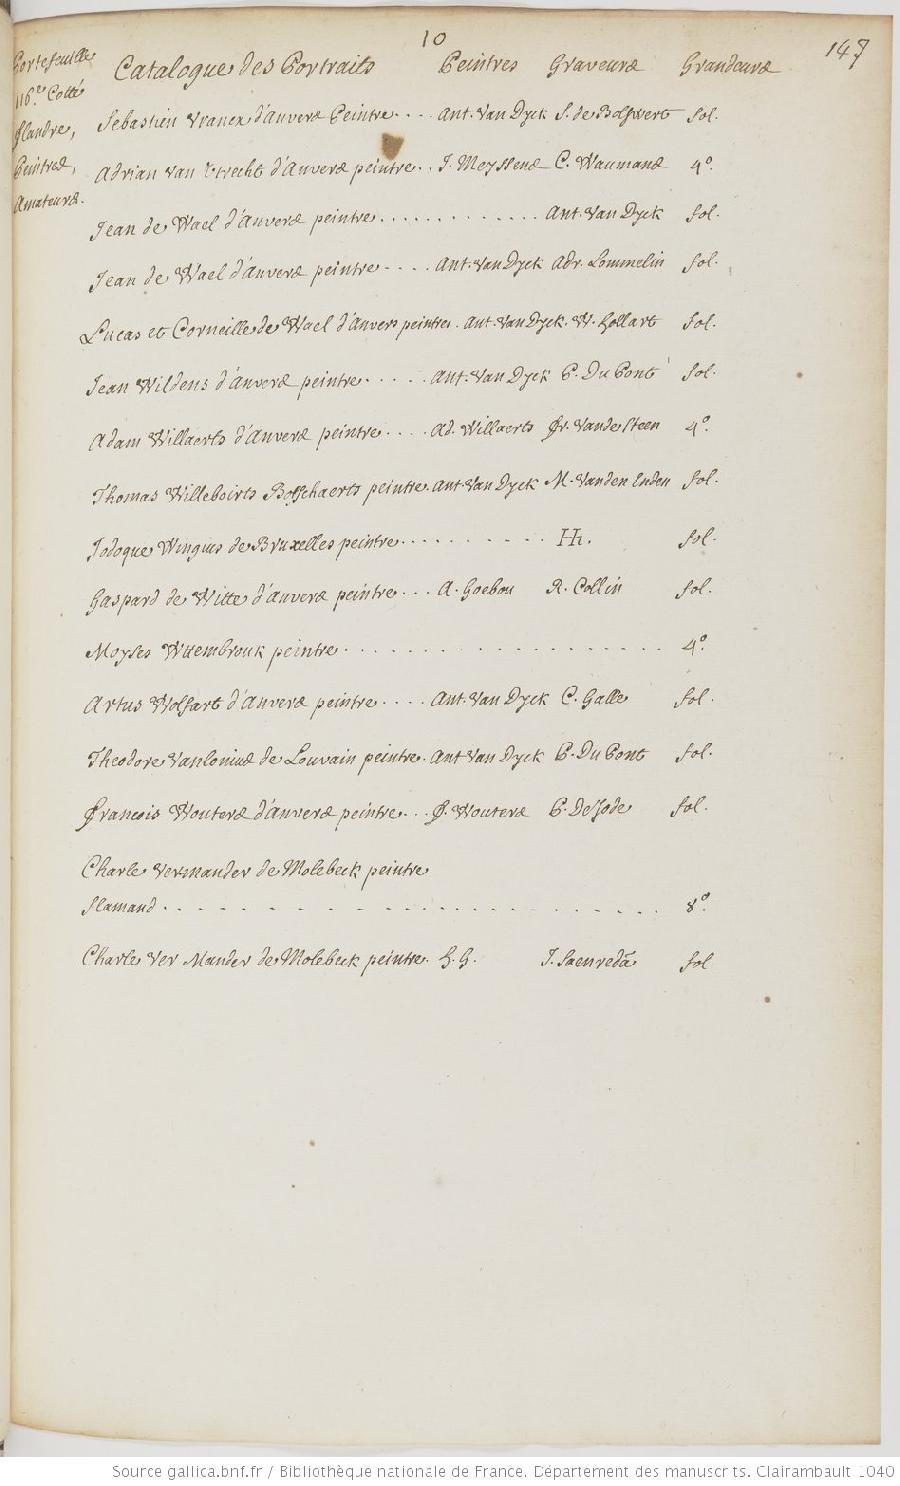 10
147
Portefeuille
116.e Cotté
flandre,
Peintres,
Amateurs.
Catalogue des Portraits Peintres Graveurs Grandeurs
Sebastien Vrancx d'Anvers Peintre.... Ant. Van Dyck S. de Bolswert fol.
Adrian van Utrecht d'Anvers peintre.. J. Meyssens C. Waumans 4o.
Jean de Wael d'Anvers peintre............. Ant. Van Dyck fol.
Jean de Wael d'Anvers peintre.... Ant. Van Dyck Adr. Lommelin fol.
Lucas et Corneille de Wael d'Anvers peintres. Ant. Van Dyck. W. Hollart fol.
Jean Wildens d'Anvers peintre..... Ant. Van Dyck P. Du Pont fol.
Adam Willaerts d'Anvers peintre.... Ad. Willaerts Fr. Vande Steen 4o.
Thomas Willeboirts Bosschaerts peintre Ant. Van Dyck M. Vanden Enden fol.
Jodoque Wingius de Bruxelles peintre.......... HH. fol.
Gaspard de Witte d'Anvers peintre... A. Goebou R. Collin fol.
Moyses Wtembrouk peintre................... 4o.
Artus Wolfart d'Anvers peintre.... Ant. Van Dyck C. Galle fol.
Theodore Vanlonius de Louvain peintre. Ant Van Dyck P. Du Pont fol.
François Wouters d'Anvers peintre... F. Wouters P. De Jode fol.
Charle Vermander de Molebeck peintre
flamand....................... 8o.
Charle Ver Mander de Molebeck peintre. H. G. J. Saenredā fol
Source gallica.bnf.fr / Bibliothèque nationale de France. Département des manuscrits. Clairambault 1040